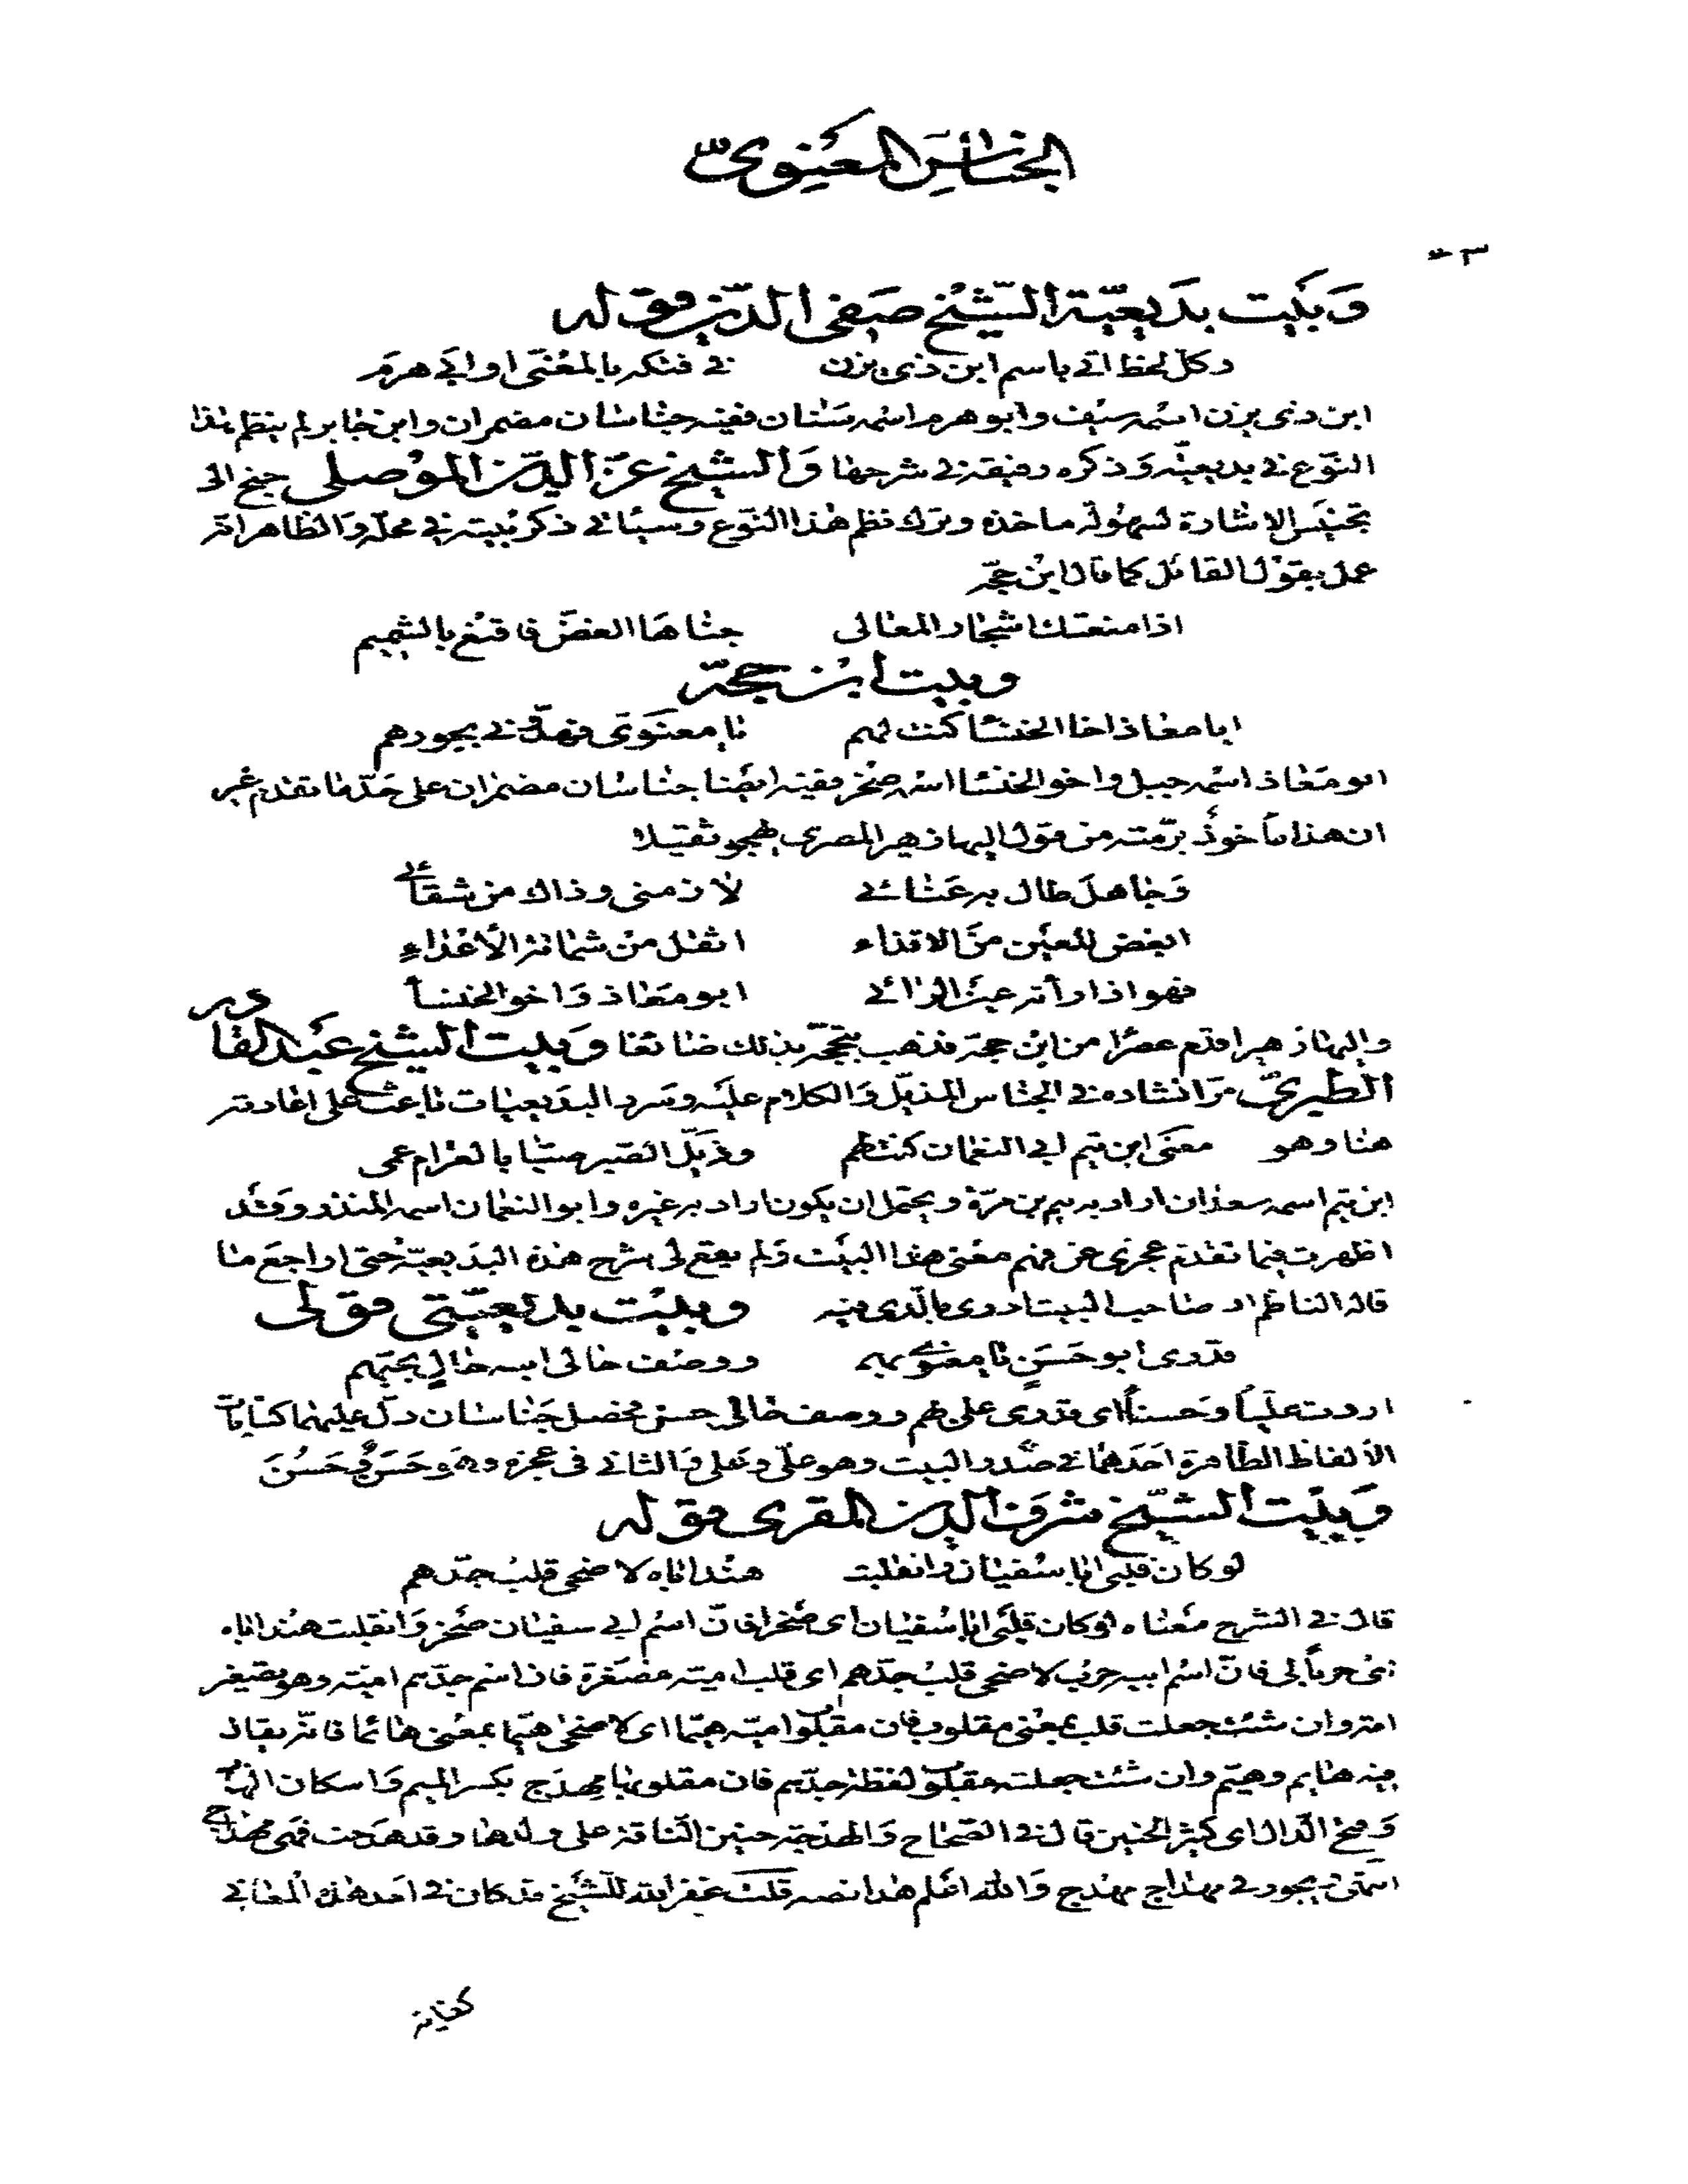 الجناس المعنوي
وبيت بديعية الشيخ صفي الدين قوله
وكل لحظ اتى باسم ابن ذي يزن في فتكه بالمعنى او ابي هرم
ابن ذي يزن اسمه سيف وابو هرم اسمه سنان ففيه جناسان مضمران وابن جابر لم ينظم هذا
النوع في بديعيته وذكره رفيقه في شرحها والشيخ عز الدين الموصلي جنح الى
تجنيس الاشارة لسهولة ماخذه وترك نظم هذا النوع وسياتي ذكر بيته في محله والظاهر انه
عمل بقول القائل كما قال ابن حجة
اذا منعتك اشجار المعالى جناها الغض فاقنع بالشميم
وبيت ابن حجة
ابا معاذ اخا الخنسا كنت لهم يا معنوي فهدوني بجورهم
ابو معاذ اسمه جبل واخو الخنسا اسمه صخر ففيه ايضا جناسان مضمران على حد ما تقدم غير
ان هذا ماخوذ برمته من قول البهاء زهير المصري يهجو ثقيلا
وجاهل طال به عنائي لازمني وذاك من شقائي
ابغض للعين من الاقذاء اثقل من شماتة الاعداء
فهو اذا رأته عين الرائي ابو معاذ واخو الخنسأ
والبهاء زهير اقدم عصرا من ابن حجة فذهب بتجحه بذلك ضائعا وبيت الشيخ عبد القادر
الطبري مر انشاده في الجناس المذيل والكلام عليه وسرد البديعيات باعث على اعادته
هنا وهو معنى ابن تيم ابي النعمان كنت لهم وذيل الصبر صبا بالغرام عمى
ابن تيم اسمه سعد ان اراد به تيم بن مرة ويحتمل ان يكون اراد به غيره وابو النعمان اسمه المنذر وقد
اظهرت فيما تقدم عجزي عن فهم معنى هذا البيت ولم يقع لي شرح هذه البديعية حتى اراجع ما
قاله الناظم اذ صاحب البيت ادرى بالذي فيه وبيت بديعيتي قولي
قدري ابو حسن يا معنوي بهم ووصف حالى ابنه حالي بحبهم
اردت عليا وحسنا اي قدري على بهم ووصف حالي حسن فحصل جناسان دل عليهما كنايات
الالفاظ الظاهرة احدهما في صدر البيت وهو علي وعلى والثاني في عجزه وهو حسن وحسن
وبيت الشيخ شرف الدين المقري قوله
لو كان قلبي ابا سفيان وانقلبت هند اباه لاضحى قلب جدهم
قال في الشرح معناه لو كان قلبي ابا سفيان اي صخرا فان اسم ابي سفيان صخر وانقلبت هند اباه
اي حربا لي فان اسم ابيه حرب لاضحى قلب جدهم اي قلب امية مصغرة فان اسم جدهم امية وهو تصغير
امة وان شئت جعلت قلب بمعنى مقلوب فان مقلوب امية هيما اى لاضحى هيما بمعنى هائما فانه يقال
فيه هايم وهيم وان شئت جعلته مقلوب لفظة جدهم فان مقلوبها مهدج بكسر الميم واسكان الهاء
وفتح الدال اي كثير الحنين قال في الصحاح والهدجة حنين الناقة على ولدها وقد هدجت فهي مهداج
انتهى فيجوز في مهداج مهدج والله اعلم هذا نصه قلت غفر الله للشيخ قد كان في احد هذه المعاني
كفاية